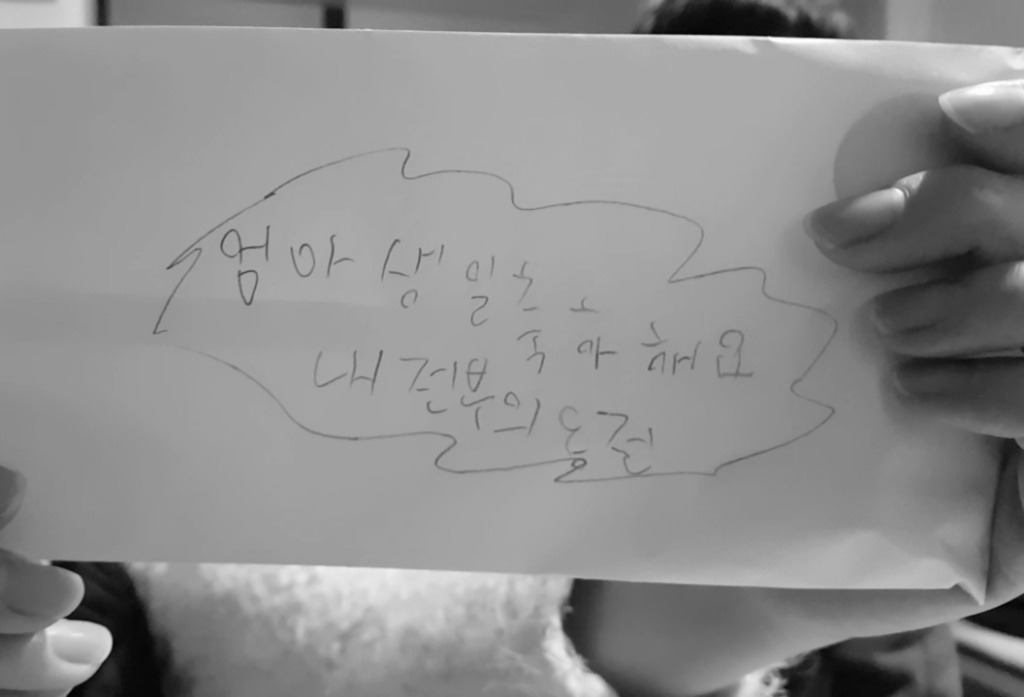 엄마 생일축하해요
내 전부의 동전